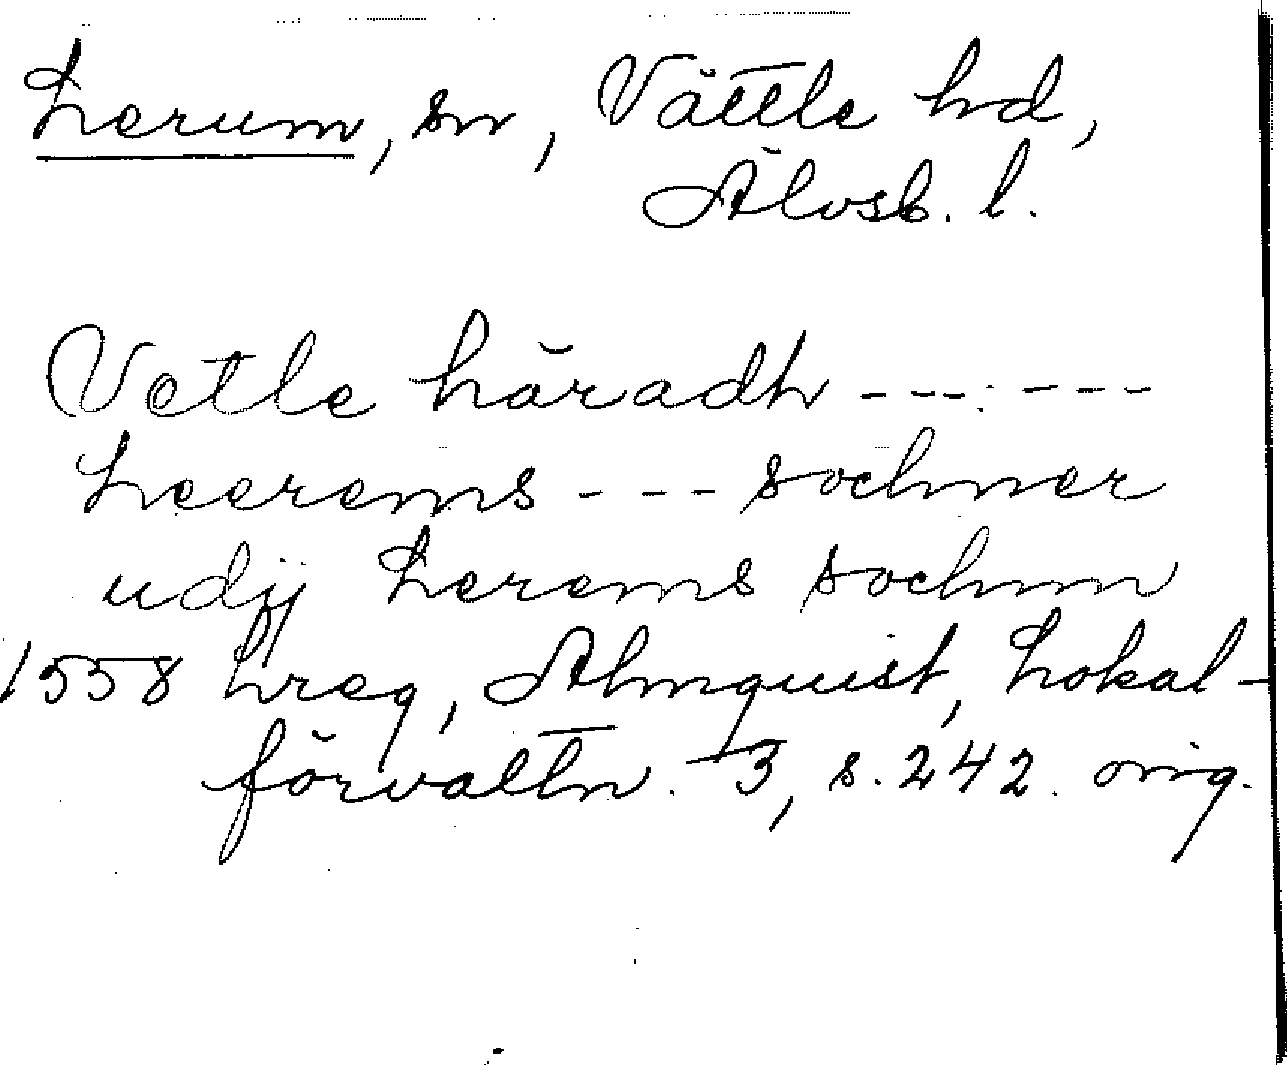 Lerum, sn, Vättle hd,
Älvsb. l.
Vetle häradh - - - - - - -
Leerems - - - sochner
udij Lerems sochnn
1558 hreg, Almquist, Lokal-
förvaltn. 3, s. 242. orig.